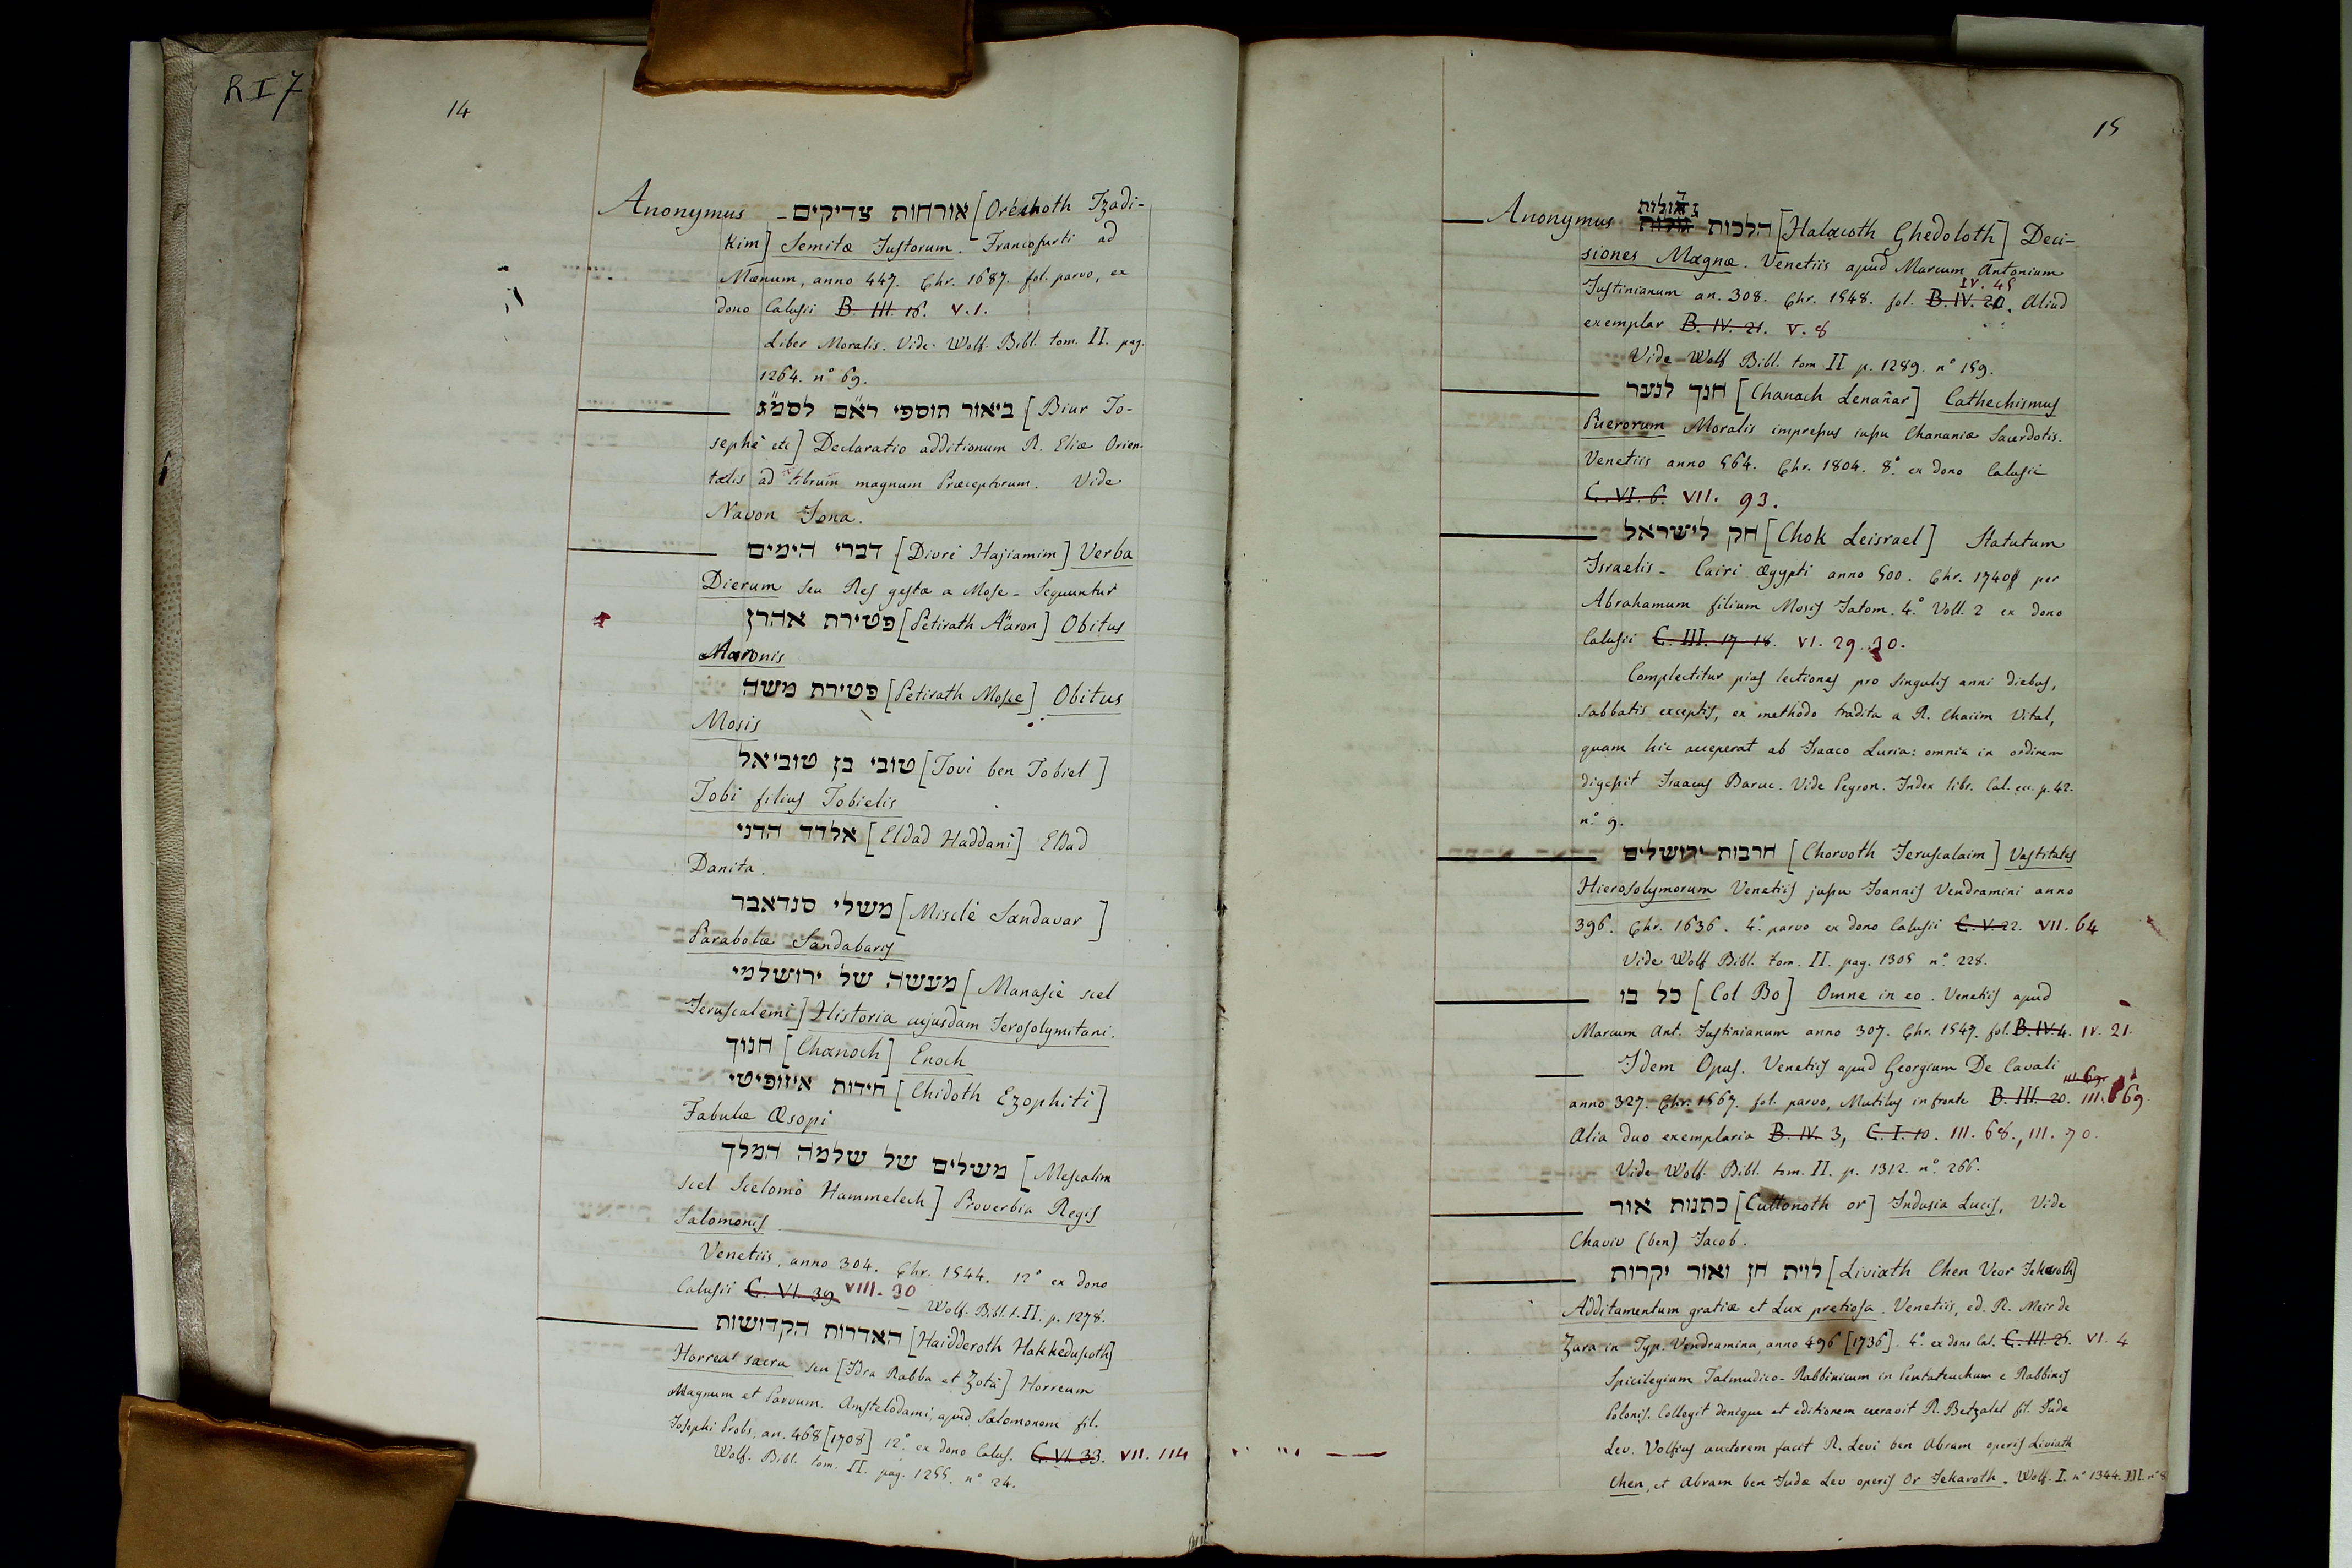 R I 7
14
Anonymus אורחות צדיקים [Oréchoth Tzadi-
kim] Semitæ Justorum. Francofurti ad
Mœnum, anno 447. Chr. 1687. fol. parvo, ex
dono Calusii B. III. 16. V. 1.
Liber Moralis. Vide Wolf. Bibl. tom. II. pag.
1264. n° 69.
ביאור תוספי רא״ם לסמ״ג [Biur To-
sephè etc] Declaratio additionum R. Eliæ Orien-
talis ad librum magnum Præceptorum. Vide
Navon Jona.
דברי הימים [Divrè Hajiamim] Verba
Dierum seu Res gestæ a Mose - Sequuntur
פטירת אהרן [Petirath Aäron] Obitus
Aaronis
פטירת משה [Petirath Mosce] Obitus
Mosis
טובי בן טוביאל [Tovi ben Tobiel]
Tobi filius Tobielis
אלדד הדני [Eldad Haddani] Eldad
Danita.
משלי סנדאבר [Misclè Sandavar]
Parabolæ Sandabaris
מעשה של ירושלמי [Manasiè scel
Jeruscalemi] Historia cujusdam Jerosolymitani.
חנוך [Chanoch] Enoch
חידות איזופיטי [Chidoth Ezophiti]
Fabulæ Æsopi
משלים של שלמה המלך [Mescalim
scel Scelomò Hammelech] Proverbia Regis
Salomonis
Venetiis, anno 304. Chr. 1544. 12° ex dono
Calusii C. VI. 39 VIII. 30 Wolf. Bibl. t. II. p. 1278.
האדרות הקדושות [Haidderoth Hakkeduscoth]
Horrea sacra seu [Idra Rabba et Zotà] Horreum
Magnum et Parvum. Amstelodami, apud Salomonem fil.
Josephi Probs, an. 468 [1708] 12°. ex dono Calus. C. VI. 33. VII. 114
Wolf. Bibl. tom. II. pag. 1255. n° 24.
15
Anonymus הלכות גדולות [Halacoth Ghedoloth] Deci-
siones Magnæ. Venetiis apud Marcum Antonium
Justinianum an. 308. Chr. 1548. fol. B. IV. 20. IV. 45 Aliud
exemplar B. IV. 21. V. 8
Vide Wolf Bibl. tom II p. 1289. n° 159.
חנך לנער [Chanach Lenañar] Cathechismus
Puerorum Moralis impressus jussu Chananiæ Sacerdotis.
Venetiis anno 564. Chr. 1804. 8° ex dono Calusii
C. VI. 6. VII. 93.
חק לישראל [Chok Leisrael] Statutum
Israelis - Cairi Ægypti anno 500. Chr. 1740 per
Abrahamum filium Mosis Jatom. 4° Voll. 2 ex dono
Calusii C. III. 17-18. VI. 29. 30.
Complectitur pias lectiones pro singulis anni diebus,
sabbatis exceptis, ex methodo tradita a R. Chaiim Vital,
quam hic acceperat ab Isaaco Luria: omnia in ordinem
digessit Isaacus Baruc. Vide Peyron. Index libr. Cal. ecc. p. 42.
n° 9.
חרבות ירושלים [Chorvoth Jeruscalaim] Vastitates
Hierosolymorum Venetiis jussu Joannis Vendramini anno
396. Chr. 1636. 4° parvo ex dono Calusii C. V. 22. VII. 64
Vide Wolf Bibl. tom. II. pag. 1305 n° 228.
כל בו [Col Bo] Omne in eo. Venetiis apud
Marcum Ant. Justinianum anno 307. Chr. 1547. fol. B. IV. 4. IV. 21.
Idem Opus. Venetiis apud Georgium De Cavali
anno 327. Chr. 1567. fol. parvo, Mutilus in fronte B. III. 20. III. 69.
Alia duo exemplaria B. IV. 3, C. I. 10. III. 68., III. 70.
Vide Wolf. Bibl. tom. II. p. 1312. n° 266.
כתנות אור [Cuttonoth or] Indusia Lucis, Vide
Chaviv (ben) Jacob.
לוית חן ואור יקרות [Liviath Chen Veor Jekaroth]
Additamentum gratiæ et Lux pretiosa. Venetiis, ed. R. Meir de
Zara in Typ. Vendramina, anno 496 [1736]. 4° ex dono Cal. C. III. 25. VI. 4
Spicilegium Talmudico-Rabbinicum in Pentateuchum e Rabbinis
Polonis. Collegit denique et editionem curavit R. Betzalel fil. Judæ
Lev. Volfius auctorem facit R. Levi ben Abram operis Liviath
Chen, et Abram ben Judæ Lev operis Or Jekaroth. Wolf. I. n° 1344. III. n° 8